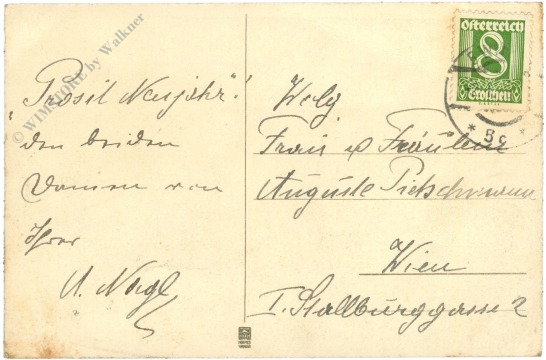 „Prosit Neujahr"!
den beiden
Damen von
Ihrer
A. Nagl
© WIMSTORE by Walkner
Österreich
8
Groschen
* 5c *
Frau u Fräulein
Auguste Pietschmann
Wien
I. Stallburggasse 2